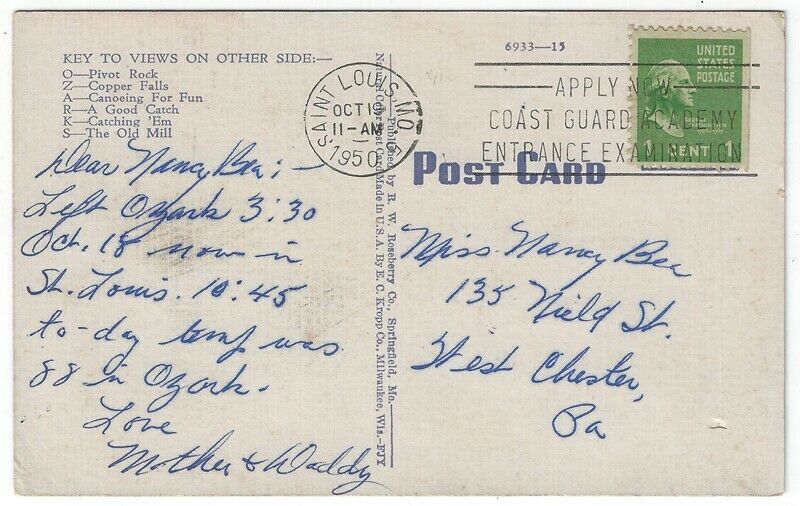 KEY TO VIEWS ON OTHER SIDE:—
O—Pivot Rock
Z—Copper Falls
A—Canoeing For Fun
R—A Good Catch
K—Catching 'Em
S—The Old Mill
Dear Nancy Bea:—
Left Ozark 3:30
Oct. 18 now in
St. Louis. 10:45
to-day temp was
88 in Ozark.
Love
Mother & Daddy
Published by R. W. Roseberry Co., Springfield, Mo.—
Natural Color Post Card Made in U.S.A. By E. C. Kropp Co., Milwaukee, Wis.—FJY
SAINT LOUIS, MO.
OCT 1
11-AM
1950
6933—15
APPLY NOW
COAST GUARD ACADEMY
ENTRANCE EXAMINATION
UNITED
STATES
POSTAGE
CENT
POST CARD
Miss Nancy Bea
135 Nield St.
West Chester,
Pa